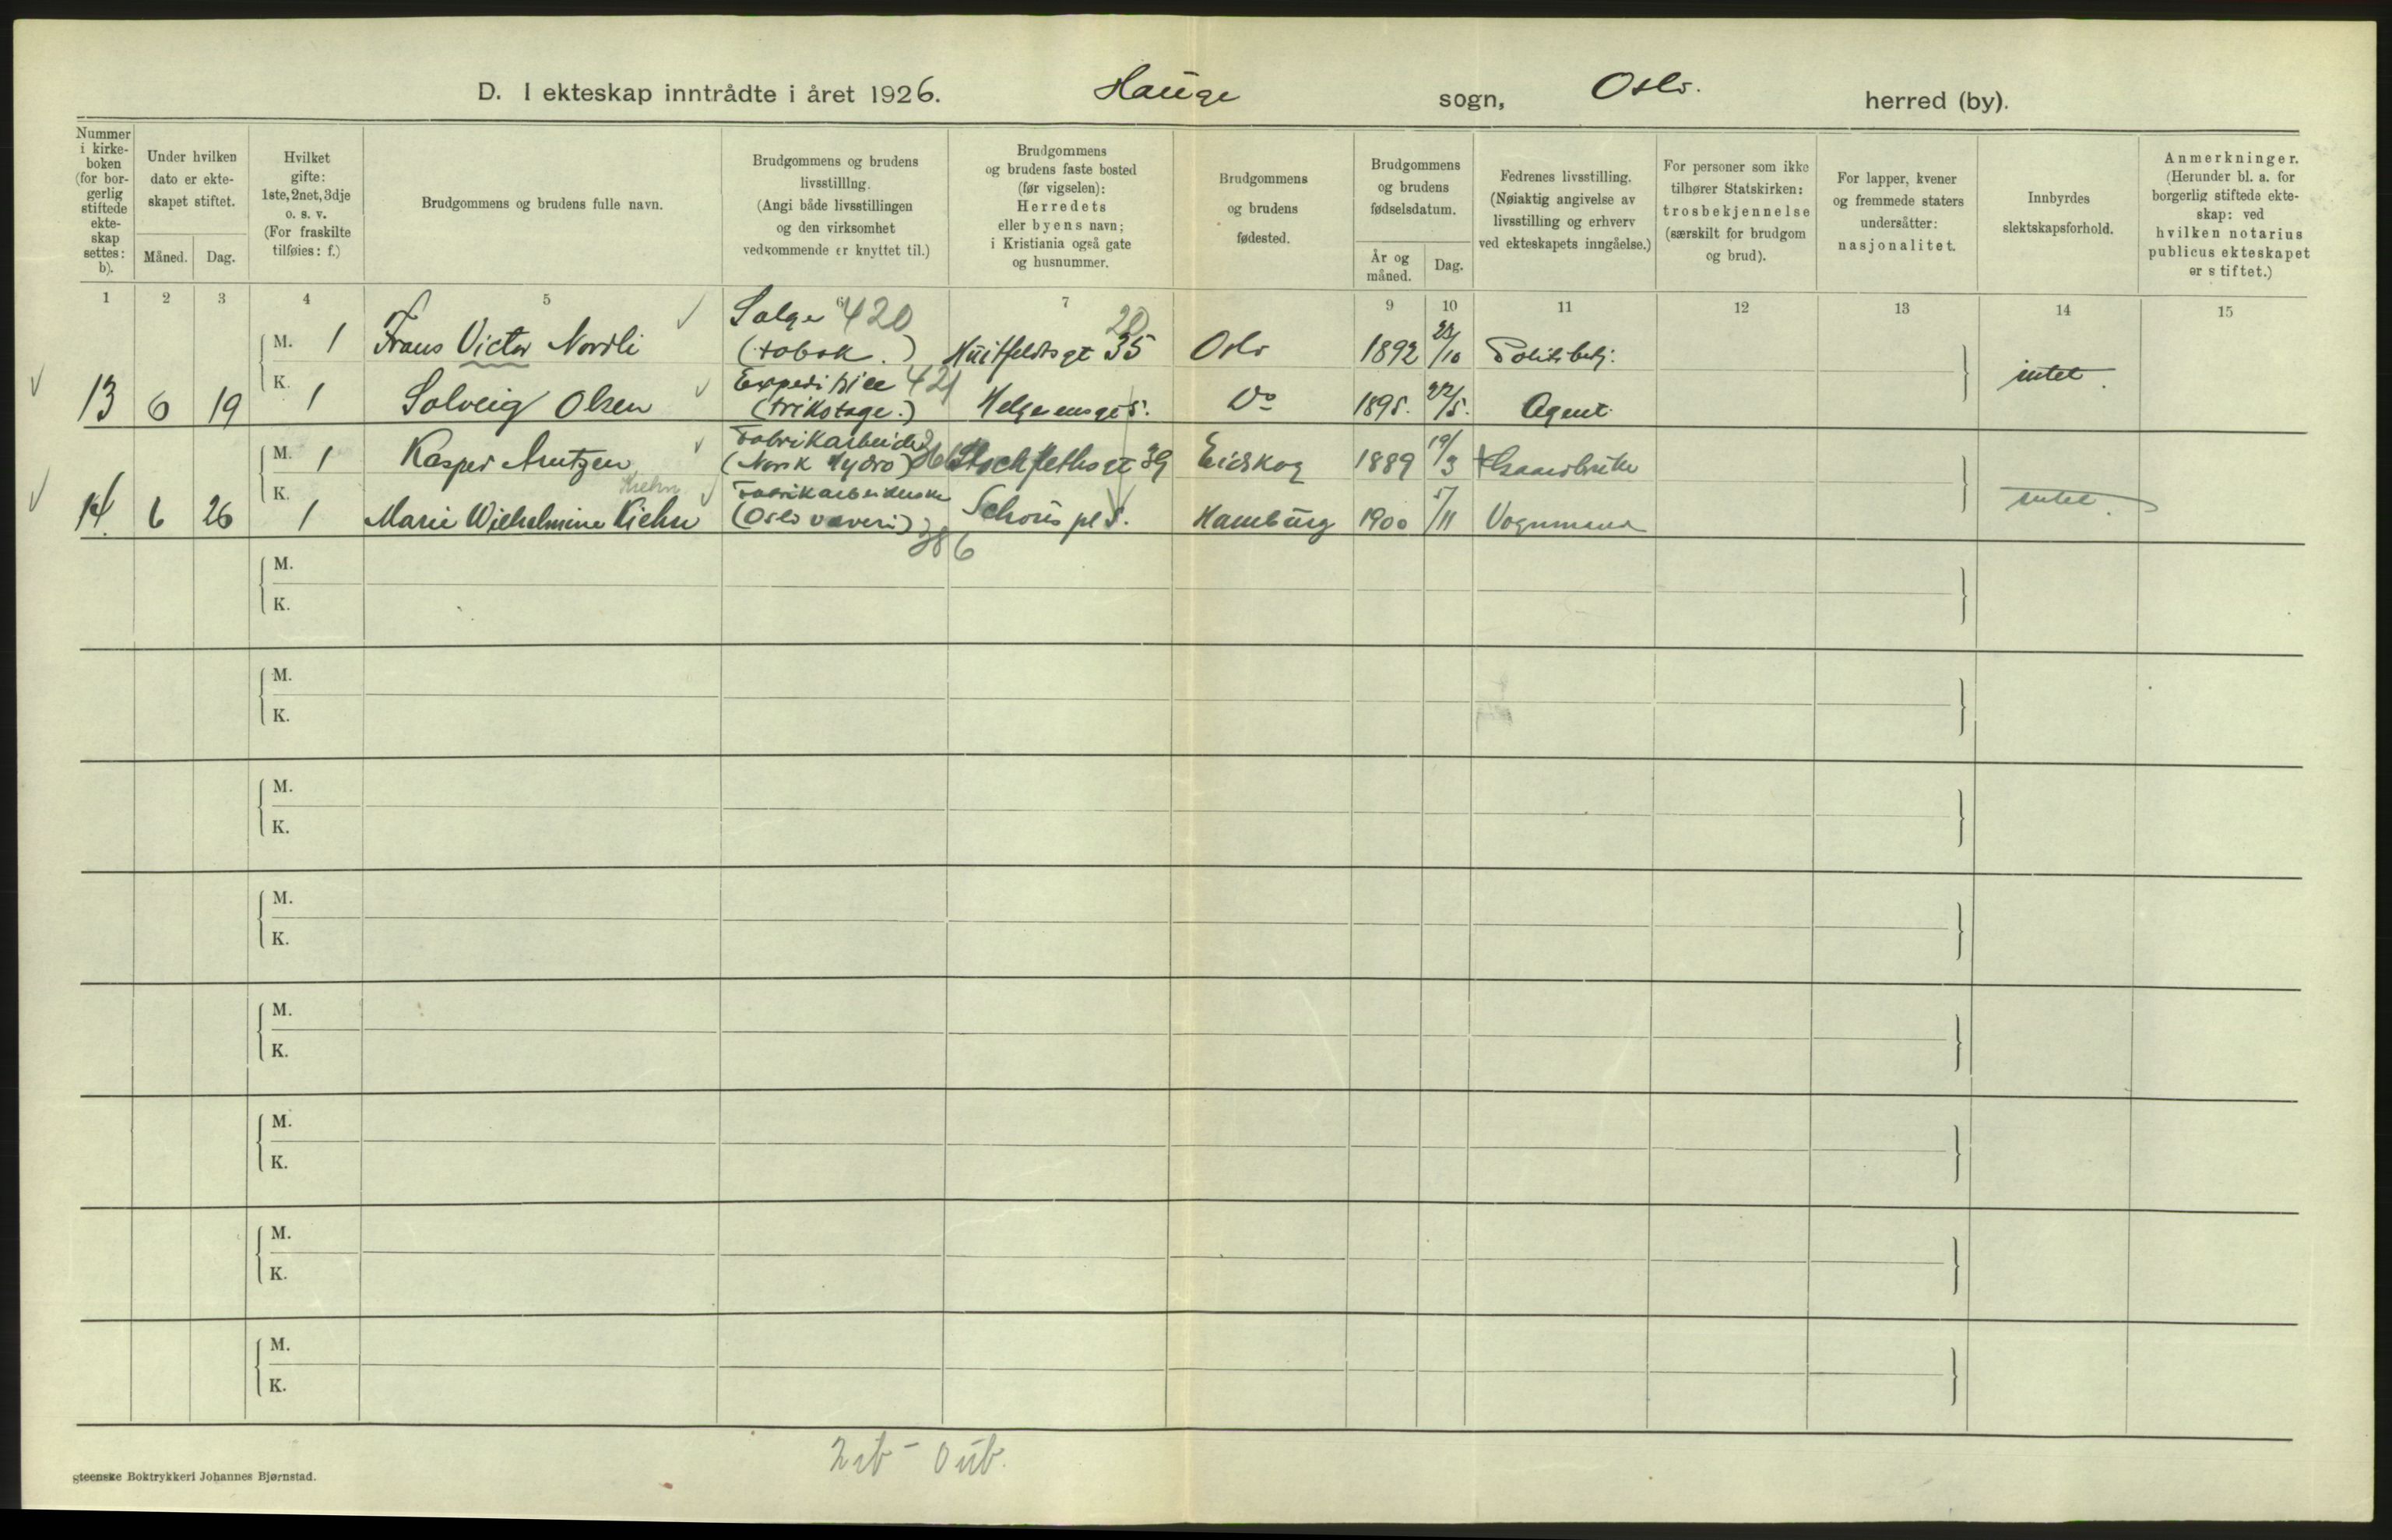 D. I ekteskap inntrådte i året 1926. Hauge sogn, Oslo. herred (by).
Nummer i kirke-boken (for bor-gerlig stiftede ekte-skap settes: b).
Under hvilken dato er ekte-skapet stiftet.
Måned. Dag.
Hvilket gifte: 1ste, 2net, 3dje o. s. v. (For fraskilte tilføies: f.)
Brudgommens og brudens fulle navn.
Brudgommens og brudens livsstilling. (Angi både livsstillingen og den virksomhet vedkommende er knyttet til.)
Brudgommens og brudens faste bosted (før vigselen): Herredets eller byens navn; i Kristiania også gate og husnummer.
Brudgommens og brudens fødested.
Brudgommens og brudens fødselsdatum.
År og måned. Dag.
Fedrenes livsstilling. (Nøiaktig angivelse av livsstilling og erhverv ved ekteskapets inngåelse.)
For personer som ikke tilhører Statskirken: trosbekjennelse (særskilt for brudgom og brud).
For lapper, kvener og fremmede staters undersåtter: nasjonalitet.
Innbyrdes slektskapsforhold.
Anmerkninger. (Herunder bl. a. for borgerlig stiftede ekte-skap: ved hvilken notarius publicus ekteskapet er stiftet.)
1 2 3 4 5 6 7 9 10 11 12 13 14 15
M. 1 Frans Victor Nordli Selger 420 (tobak.) Huitfeldtsgt 35 20 Oslo 1892 /10 Politibetj.
13 6 19 K. 1 Solveig Olsen Expeditrice 421 (trikotage.) Helgesensgt 5. Do 1895. 22/5. Agent. intet.
M. 1 Kasper Arntzen Fabrikarbeider (Norsk Hydro) 39 Eidskog 1889 19/3 Gaardbruker
14. 6 26 K. 1 Marie Wilhelmine Kiehn Fabrikarbeiderske (Oslo væveri) 386 Schous pl 5. Hamburg 1900 5/11 Vognmand intet.
M.
K.
M.
K.
M.
K.
M.
K.
M.
K.
M.
K.
M.
K.
M.
K.
2 ib - 0 ub.
steenske Boktrykkeri Johannes Bjørnstad.